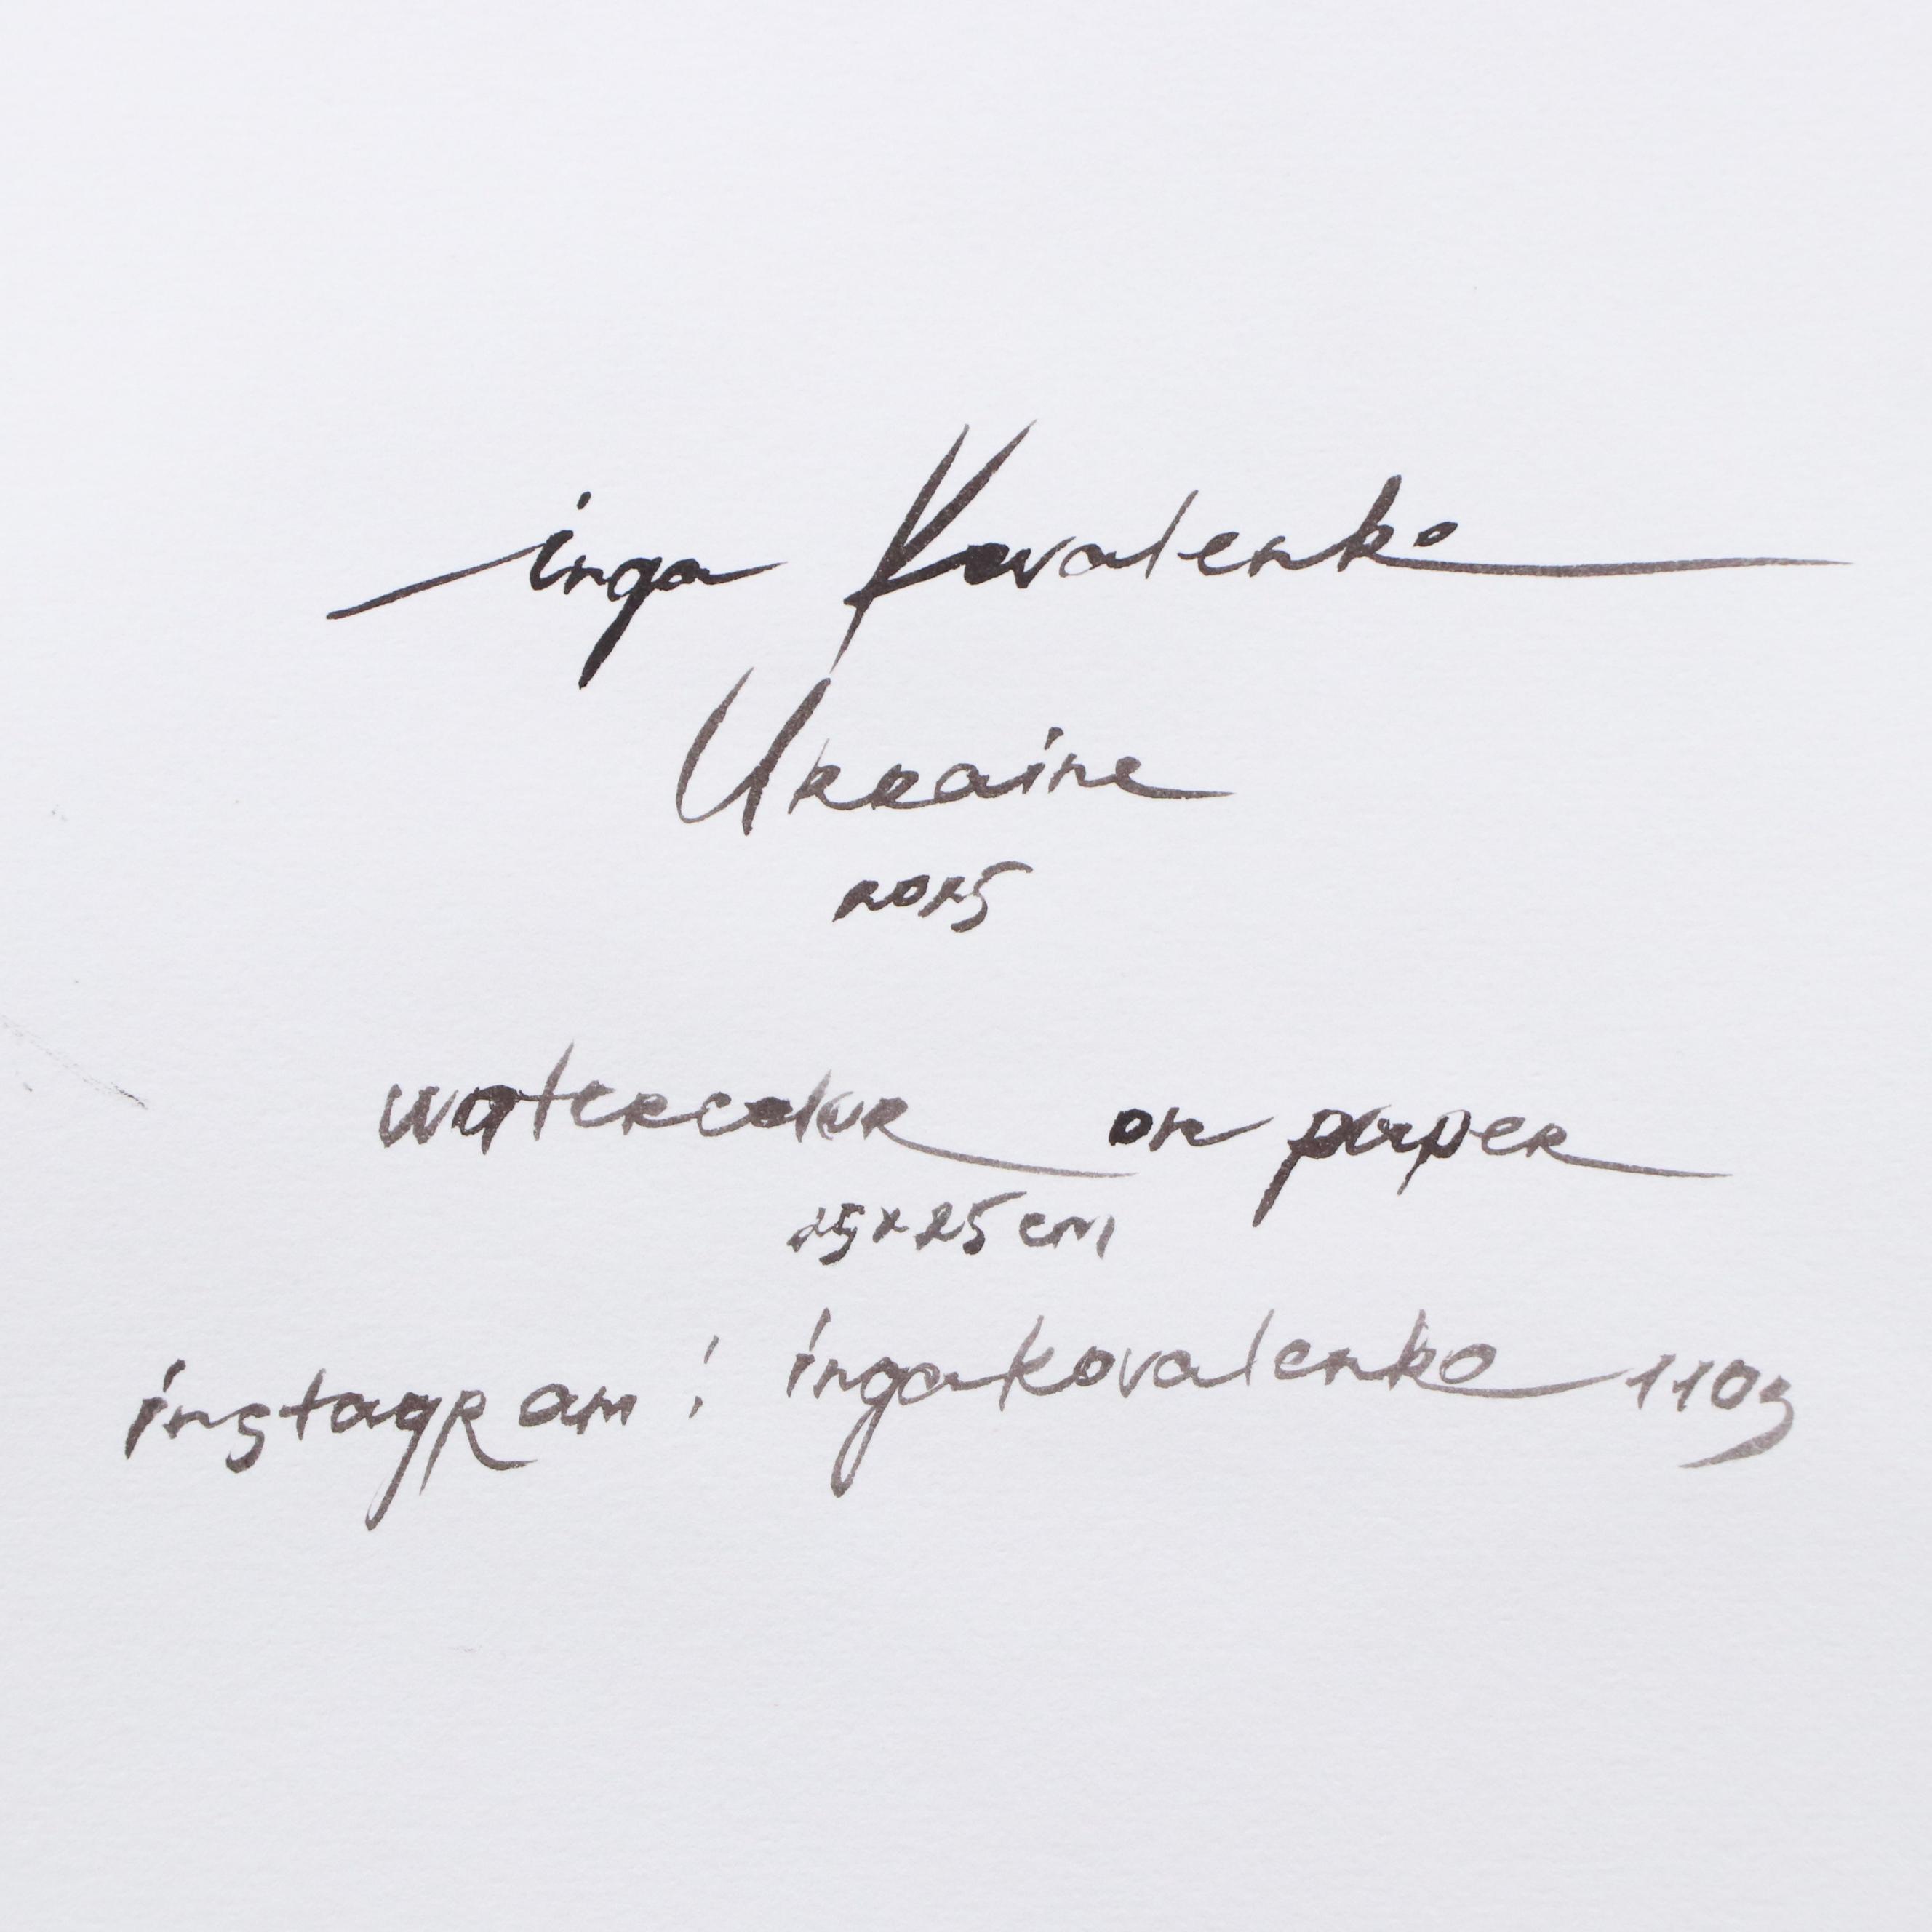 inga Kovalenko
Ukraine
2025
watercolor on paper
25x25 cm
instagram: ingakovalenko1103